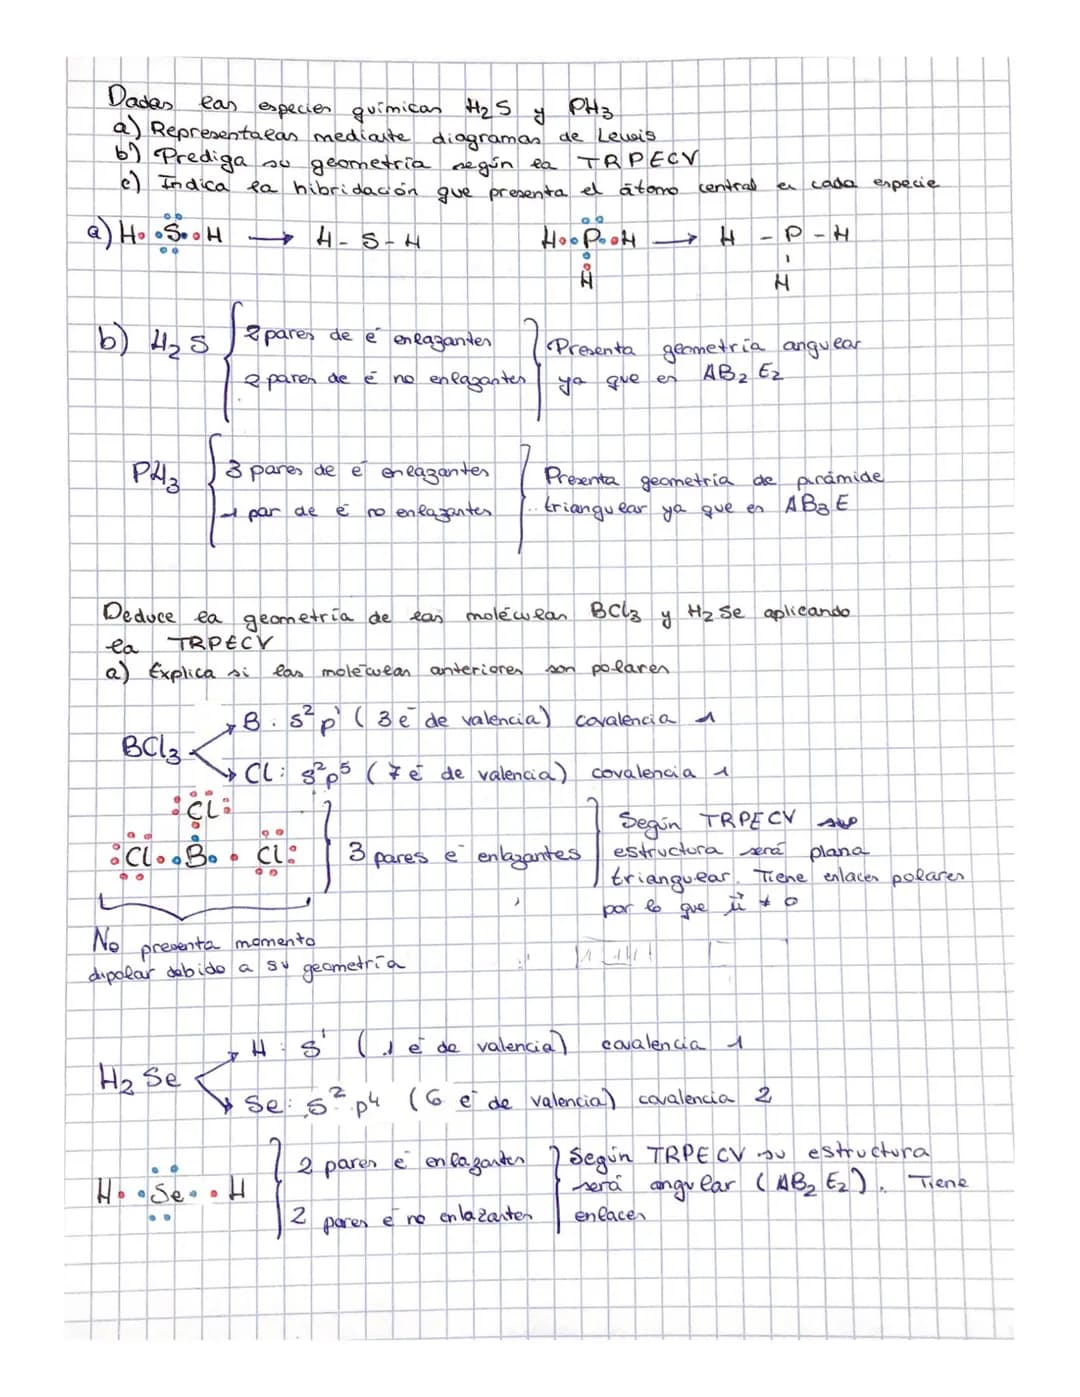 Dadas las especies químicas H₂S y PH₃
a) Represéntalas mediante diagramas de Lewis
b) Prediga su geometría según la TRPECV
c) Indica la hibridación que presenta el átomo central en cada especie
a) H S H → H - S - H H P H → H - P - H
H H
b) H₂S 2 pares de e⁻ enlazantes Presenta geometría angular
2 pares de e⁻ no enlazantes ya que es AB₂E₂
PH₃ 3 pares de e⁻ enlazantes Presenta geometría de pirámide
1 par de e⁻ no enlazantes triangular ya que es AB₃E
Deduce la geometría de las moléculas BCl₃ y H₂Se aplicando
la TRPECV
a) Explica si las moléculas anteriores son polares
B: s²p¹ (3 e⁻ de valencia) covalencia 1
BCl₃
Cl: s²p⁵ (7 e⁻ de valencia) covalencia 1
Cl
Cl B Cl 3 pares e⁻ enlazantes Según TRPECV
estructura será plana
triangular. Tiene enlaces polares
por lo que μ⃗ ≠ 0
No presenta momento
dipolar debido a su geometría
H: s¹ (1 e⁻ de valencia) covalencia 1
H₂Se
Se: s² p⁴ (6 e⁻ de valencia) covalencia 2
H Se H 2 pares e⁻ enlazantes Según TRPECV su estructura
será angular (AB₂E₂). Tiene
2 pares e⁻ no enlazantes enlaces